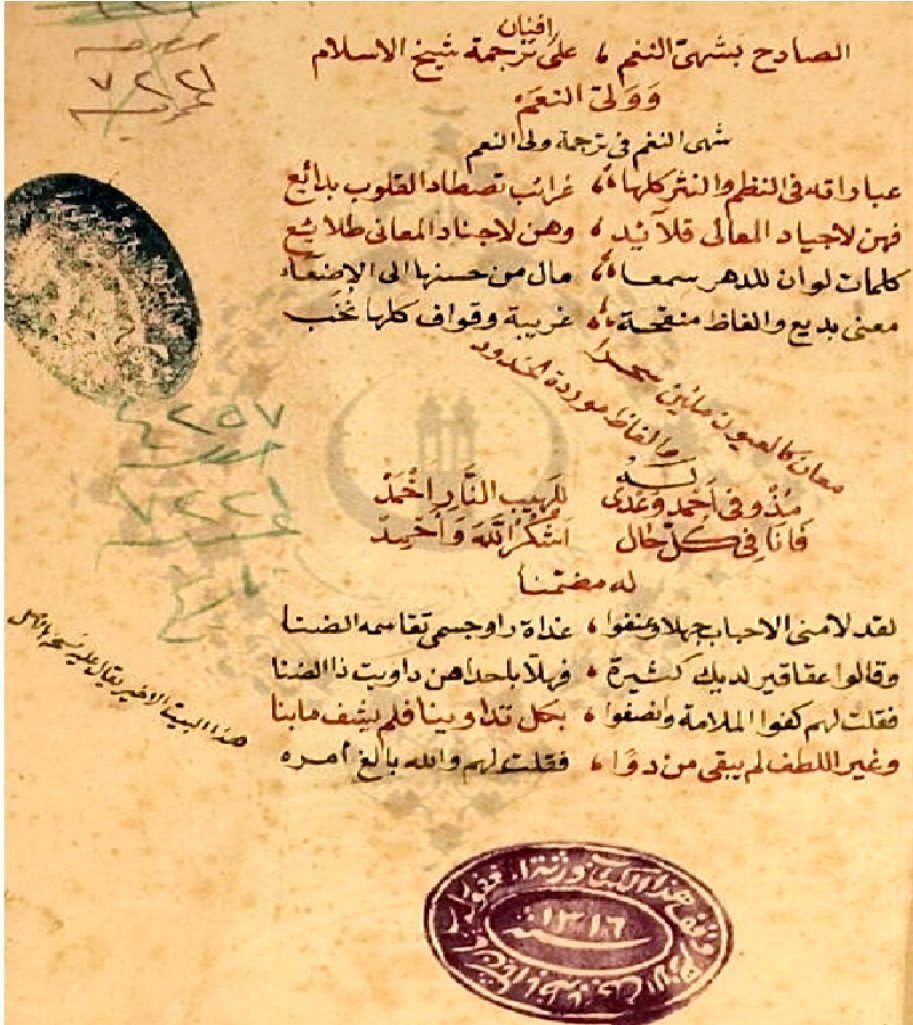 افنان
الصادح بشهى النغم ، على ترجمة شيخ الاسلام
وَوَلى النعَم
شهى النغم فى ترجمة ولى النعم
عباراته فى النظم والنثر كلها ، غرائب تصطاد القلوب بدائع
فهن لاجياد المعالى قلآئد ، وهن لاجناد المعانى طلائع
كلمات لو ان للدهر سمعا ، مال من حسنها الى الاصغاء
معنى بديع والفاظ منقحة ، غريبة وقواف كلها نخب
معان كالعيون ملئن سحرا
والفاظ موردة الخدود
لـه
مُذْ وفى أحمد وغدى للهيب النَّارِ اخْمَدْ
فَانَا فِى كلّ حَال اَشْكُرُ اللَّهَ وَأحْمِدْ
له مضمنا
لقد لامنى الاحباب جهلا وعنفوا ، غداة راو جسمى تقاسمه الضنا
وقالوا عقاقير لديك كثيرة ، فهلا باحداهن داويت ذا الضنا
فقلت لهم كفوا الملامة وانصفوا ، بكل تداوينا فلم يشف مابنا
وغير اللطف لم يبقى من دوا ، فقلت لهم والله بالغ امره
هذا البيت الاخير يقال عليه
٢٥٧
٧٢٢١
تاريخ
٧٢٢١
وقف هذا الكتاب ورثة
سنة ١٣١٦